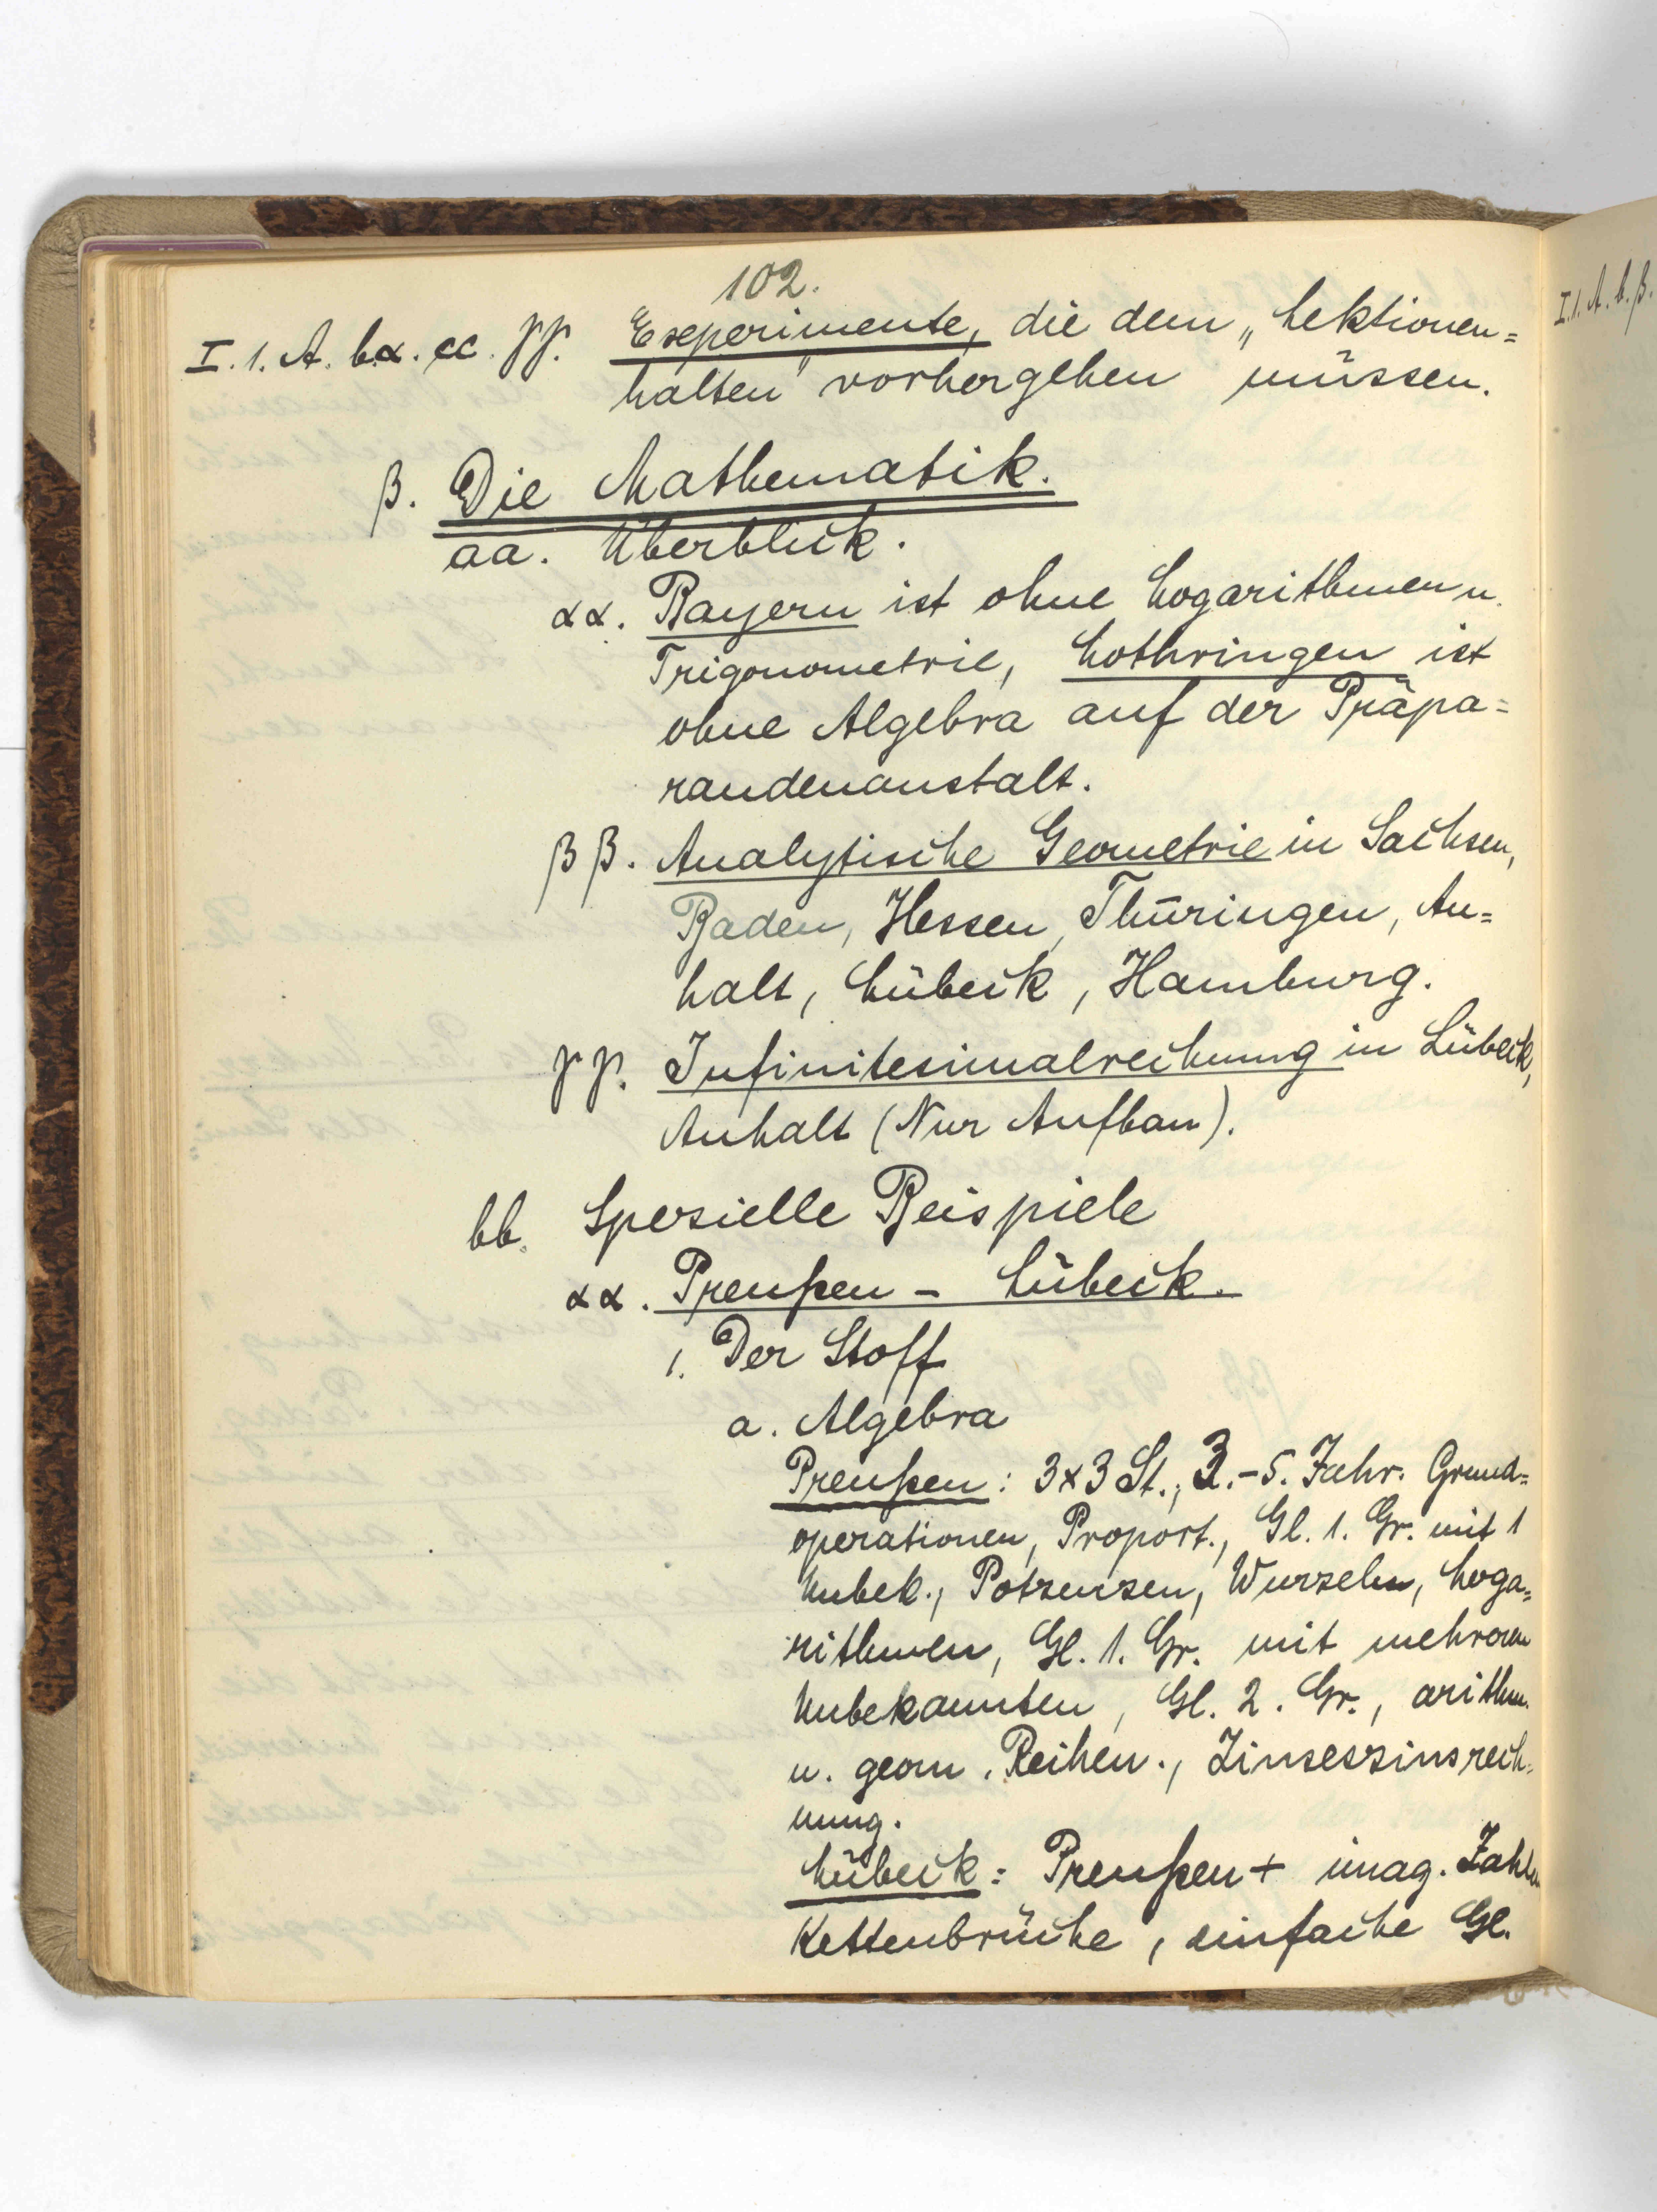 102.
I. 1. A. b.α. cc. γγ. Experimente, die dem „Lektionen=
halten" vorhergehen müssen.
β. Die Mathematik.
aa. Überblick.
αα. Bayern ist ohne Logarithmen u.
Trigonometrie, Lothringen ist
ohne Algebra auf der Präpa=
randenanstalt.
ββ. Analytische Geometrie in Sachsen,
Baden, Hessen, Thüringen, An=
halt, Lübeck, Hamburg.
γγ. Infinitesimalrechnung in Lübeck,
Anhalt (Nur Aufbau).
bb. Spezielle Beispiele
αα. Preußen - Lübeck.
1. Der Stoff
a. Algebra
Preußen: 3x3 St., 3.-5. Jahr. Grund=
operationen, Proport., Gl. 1. Gr. mit 1
Unbek., Potzenzen, Wurzeln, Loga=
rithmen, Gl. 1. Gr. mit mehreren
Unbekannten, Gl. 2. Gr., arithm.
u. geom. Reihen., Zinseszinsrech=
nung.
Lübeck: Preußen + imag. Zahlen
Kettenbrüche, einfache Gl.
I. 1. A. b. β.